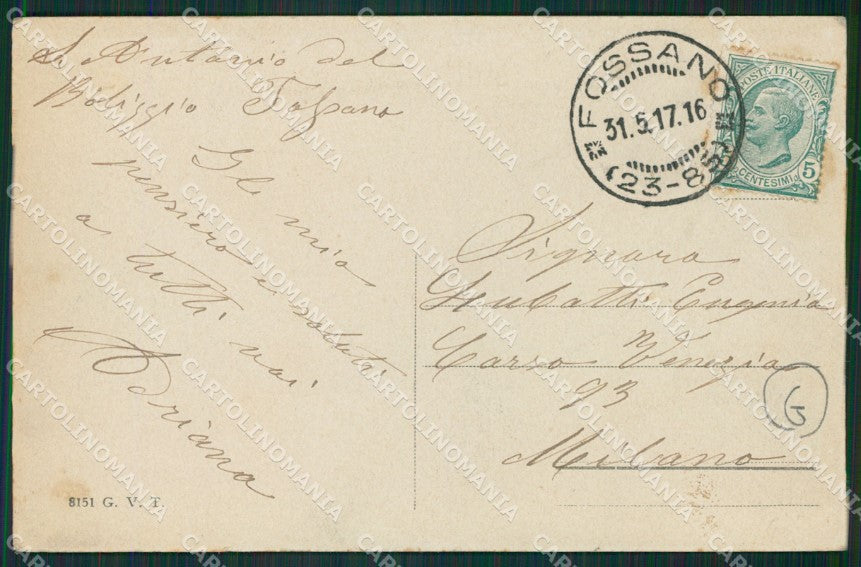 S. Antonio del
Fossano
Il mio
pensiero e saluti
a tutti voi.
Adriana
8151 G. V. T.
FOSSANO
31.5.17.16
(23-8
POSTE ITALIANE
CENTESIMI 5
Signora
Eugenia
Corso Venezia
93
Milano
G
CARTOLINOMANIA